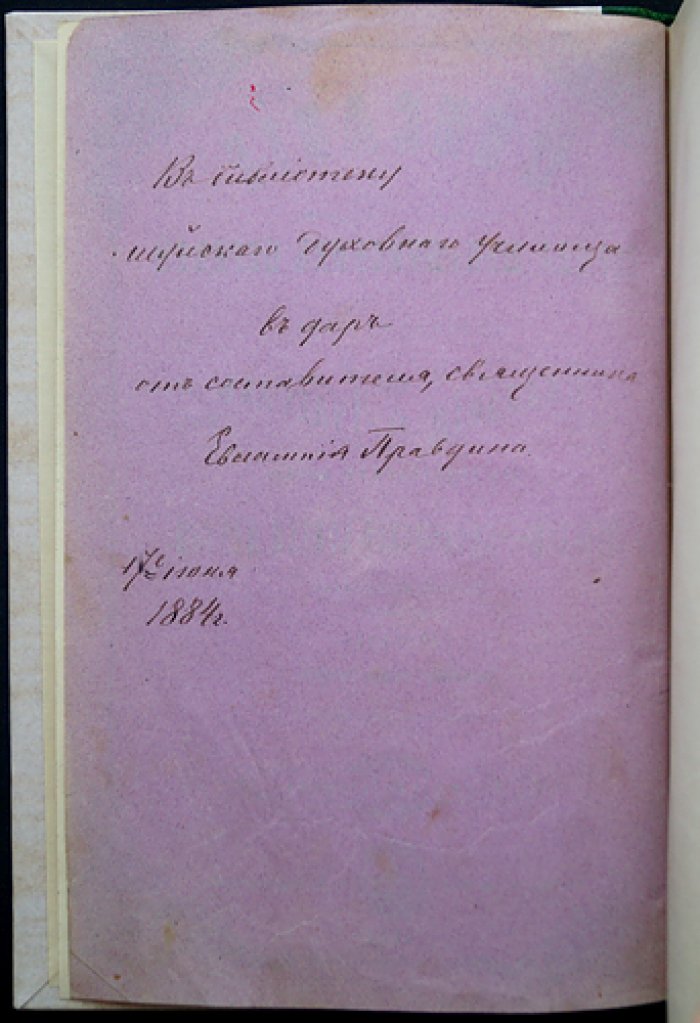 Въ библіотеку
шуйскаго духовнаго училища
въ даръ
отъ составителя, священника
Евлампія Правдина.
17е іюня
1884 г.